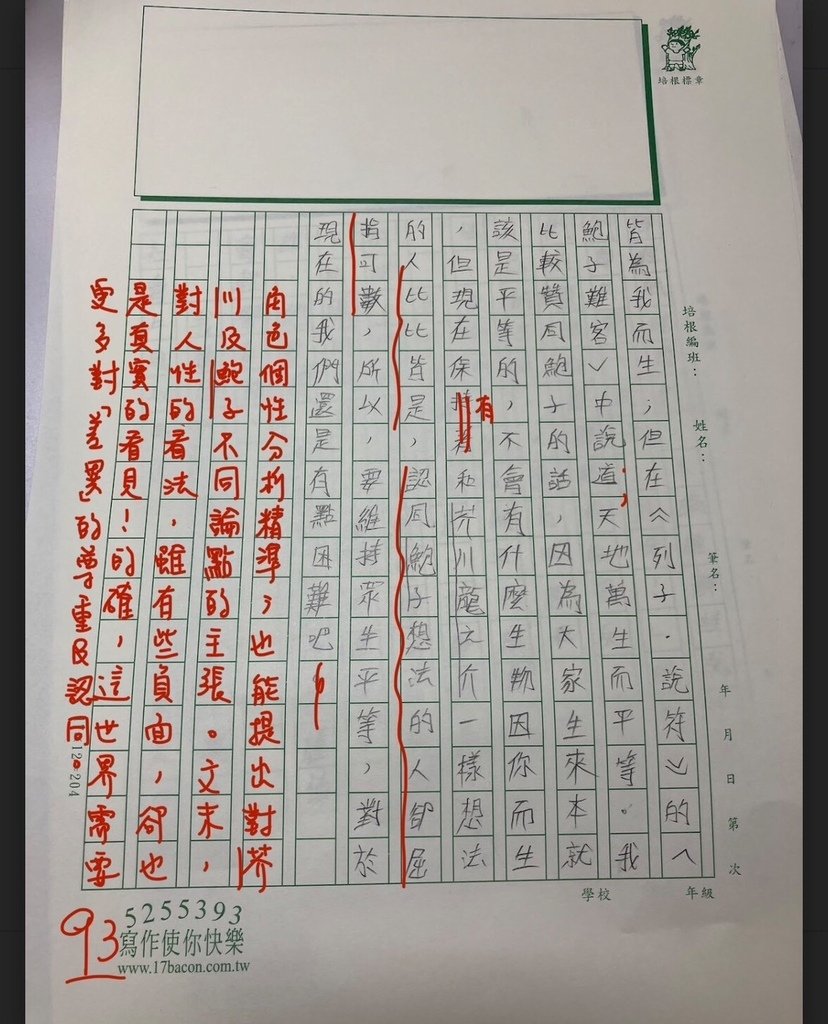 培根標章
培根編班：
姓名：
筆名：
年　月　日　第　次
學校　年級
皆為我而生；但在〈列子．說符〉的〈
鮑子難客〉中說道：天地萬生而平等。我
比較贊同鮑子的話，因為大家生來本就
該是平等的，不會有什麼生物因你而生
，但現在保持著和芥川龍之介一樣想法
有
的人比比皆是，認同鮑子想法的人卻屈
指可數，所以，要維持眾生平等，對於
現在的我們還是有點困難吧
角色個性分析精準；也能提出對芥
川及鮑子不同論點的主張。文末，
對人性的看法，雖有些負面，卻也
是真實的看見！的確，這世界需要
更多對「差異」的尊重及認同。
12×204
93
5255393
寫作使你快樂
www.17bacon.com.tw